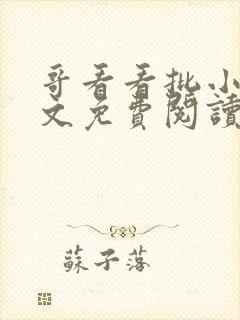 哥看看批小
文免費閱讀
蘇子落